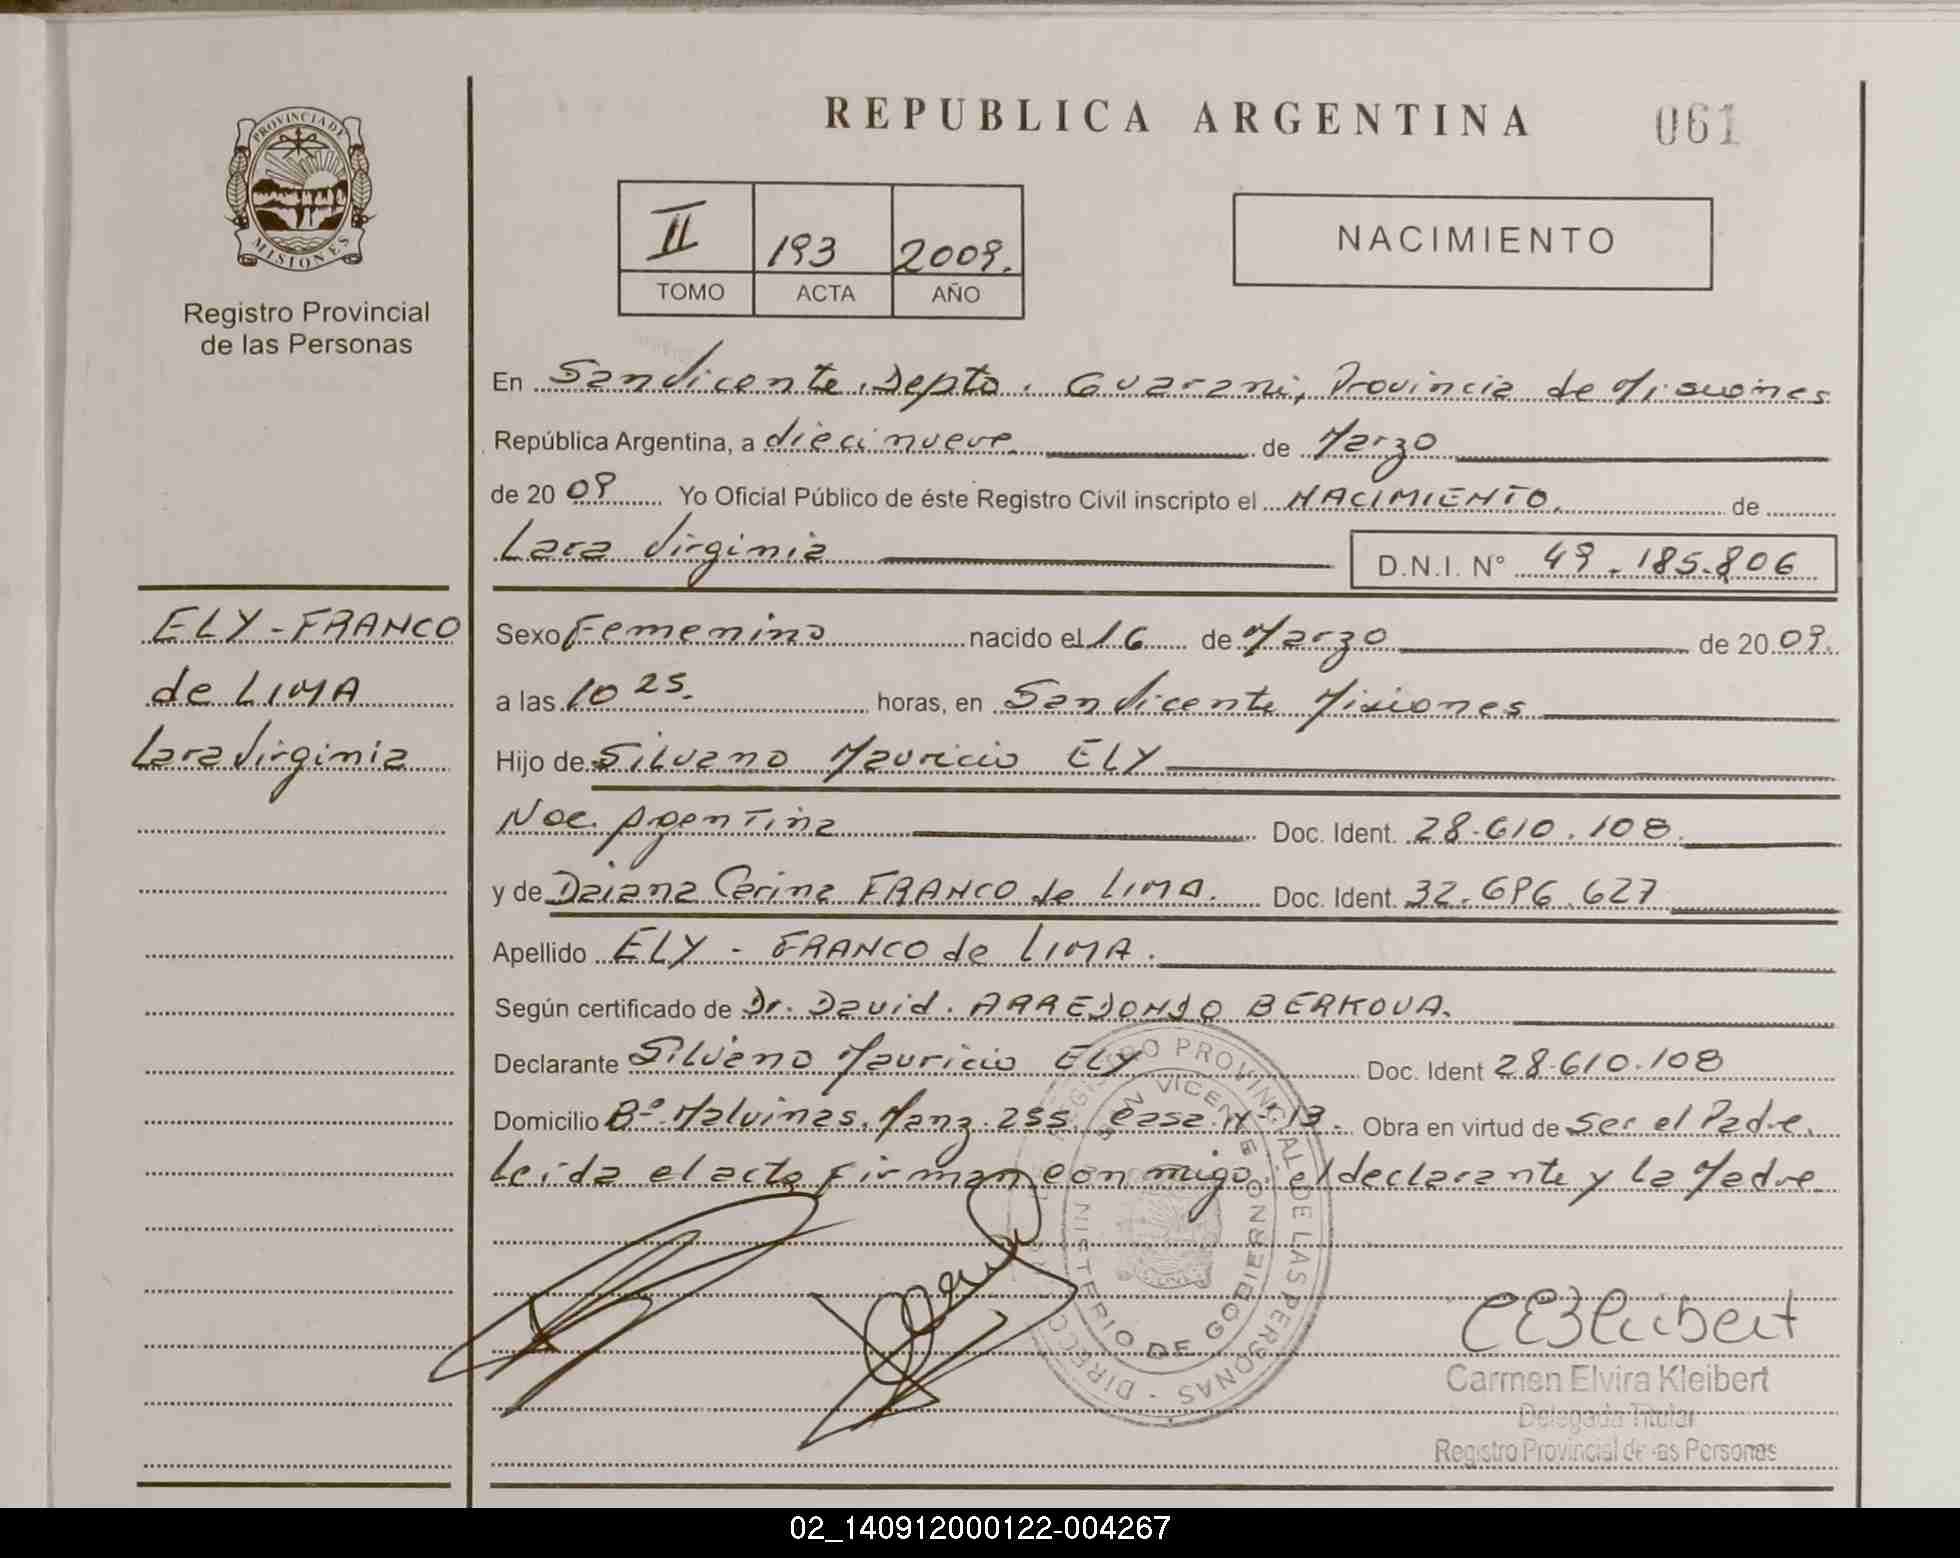 REPUBLICA ARGENTINA
061
PROVINCIA DE
MISIONES
Registro Provincial
de las Personas
II 193 2009.
TOMO ACTA AÑO
NACIMIENTO
En San Vicente. Depto. Guarani, Provincia de Misiones
República Argentina, a diecinueve de Marzo
de 20 09 Yo Oficial Público de éste Registro Civil inscripto el NACIMIENTO. de
Lara Virginia D.N.I. N° 49.185.806
ELY-FRANCO
de LIMA
Lara Virginia
Sexo Femenino nacido el 16 de Marzo de 20 09.
a las 10 25. horas, en San Vicente Misiones
Hijo de Silvano Mauricio ELY
Nac. Argentina Doc. Ident. 28.610.108.
y de Daiana Carina FRANCO de LIMA. Doc. Ident. 32.696.627
Apellido ELY - FRANCO de LIMA.
Según certificado de Dr. David. ARREDONDO BERKOVA.
Declarante Silvano Mauricio ELY Doc. Ident 28.610.108
Domicilio Bº. Malvinas. Manz. 255. casa Nº 13. Obra en virtud de Ser el Padre.
Leida el acta firman conmigo. el declarante y la Madre
DIRECC REGISTRO PROVINCIAL DE LAS PERSONAS -
SAN VICENTE
MINISTERIO DE GOBIERNO
Carmen Elvira Kleibert
Delegada Titular
Registro Provincial de las Personas
02_140912000122-004267